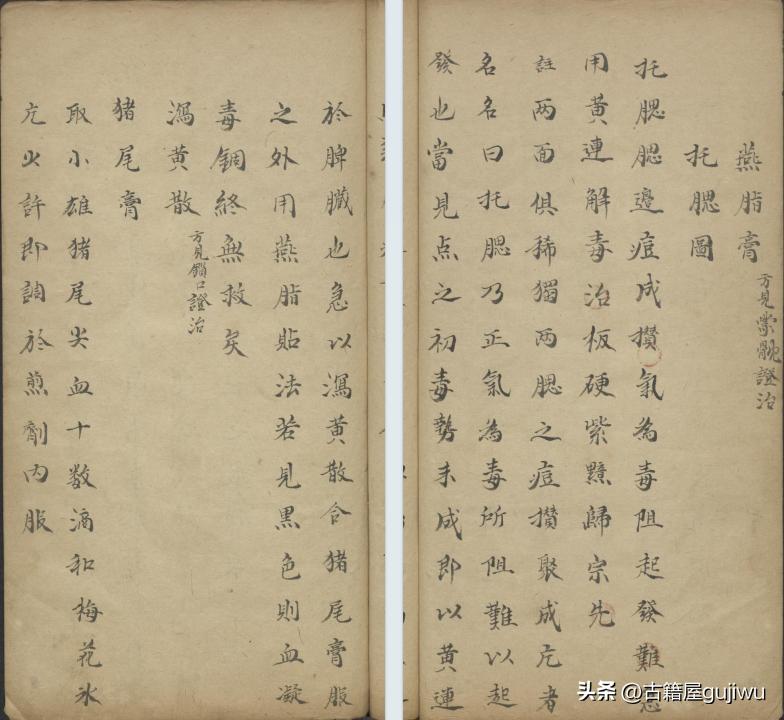 燕脂膏 方見蒙骩證治
托腮圖
托腮腮邊痘成攢氣為毒阻起發難
用黃連解毒治板硬紫黯歸宗先
註两面俱稀獨两腮之痘攢聚成片者
名名曰托腮乃正氣為毒所阻難以起
發也當見点之初毒勢未成即以黃連
於脾臟也急以瀉黃散合猪尾膏服
之外用燕脂貼法若見黑色則血凝
毒錮終無救矣
瀉黃散 方見鎖口證治
猪尾膏
取小雄猪尾尖血十数滴和梅花氷
片少許即調於煎劑內服
头条 @古籍屋gujiwu